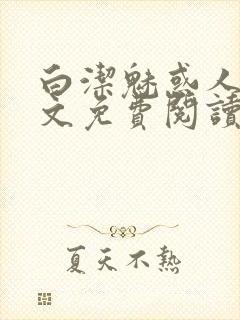 白潔魅惑人
文免費閱讀
夏天不熱